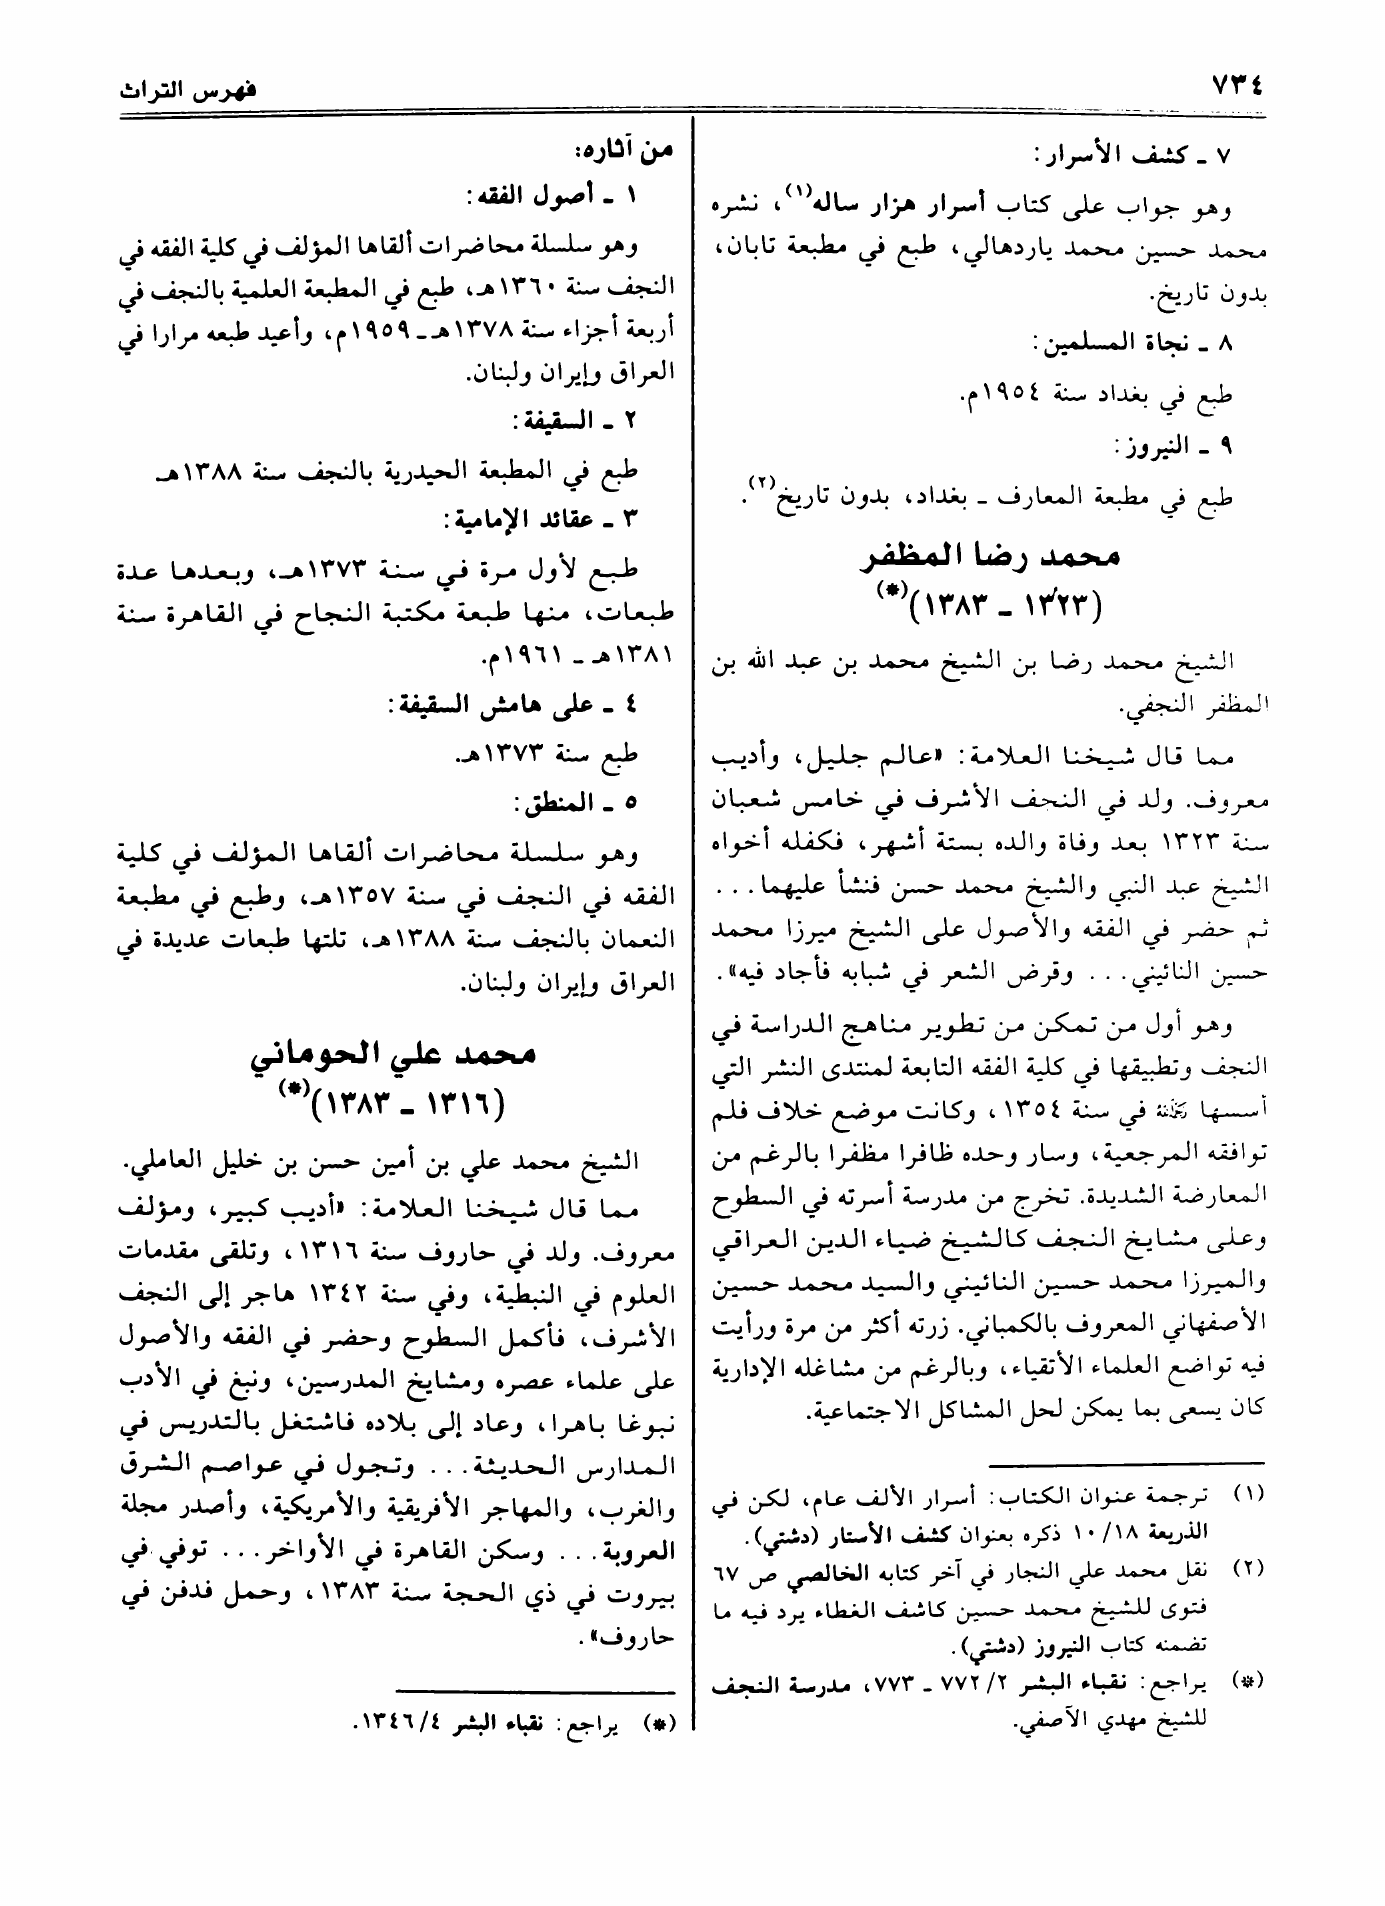 ٧٣٤
فهرس التراث
٧ ـ كشف الأسرار:
وهو جواب على كتاب أسرار هزار ساله(١)، نشره
محمد حسين محمد ياردهالي، طبع في مطبعة تابان،
بدون تاريخ.
٨ ـ نجاة المسلمين:
طبع في بغداد سنة ١٩٥٤م.
٩ ـ النيروز:
طبع في مطبعة المعارف ـ بغداد، بدون تاريخ(٢).
محمد رضا المظفر
(١٣٢٣ ـ ١٣٨٣)(*)
الشيخ محمد رضا بن الشيخ محمد بن عبد الله بن
المظفر النجفي.
مما قال شيخنا العلامة: «عالم جليل، وأديب
معروف. ولد في النجف الأشرف في خامس شعبان
سنة ١٣٢٣ بعد وفاة والده بستة أشهر، فكفله أخواه
الشيخ عبد النبي والشيخ محمد حسن فنشأ عليهما...
ثم حضر في الفقه والأصول على الشيخ ميرزا محمد
حسين النائيني... وقرض الشعر في شبابه فأجاد فيه».
وهو أول من تمكن من تطوير مناهج الدراسة في
النجف وتطبيقها في كلية الفقه التابعة لمنتدى النشر التي
أسسها رحمه الله في سنة ١٣٥٤، وكانت موضع خلاف فلم
توافقه المرجعية، وسار وحده ظافرا مظفرا بالرغم من
المعارضة الشديدة. تخرج من مدرسة أسرته في السطوح
وعلى مشايخ النجف كالشيخ ضياء الدين العراقي
والميرزا محمد حسين النائيني والسيد محمد حسين
الأصفهاني المعروف بالكمباني. زرته أكثر من مرة ورأيت
فيه تواضع العلماء الأتقياء، وبالرغم من مشاغله الإدارية
كان يسعى بما يمكن لحل المشاكل الاجتماعية.
(١) ترجمة عنوان الكتاب: أسرار الألف عام، لكن في
الذريعة ١٨/ ١٠ ذكره بعنوان كشف الأستار (دشتي).
(٢) نقل محمد علي النجار في آخر كتابه الخالصي ص ٦٧
فتوى للشيخ محمد حسين كاشف الغطاء يرد فيه ما
تضمنه كتاب النيروز (دشتي).
(*) يراجع: نقباء البشر ٢/ ٧٧٢ ـ ٧٧٣، مدرسة النجف
للشيخ مهدي الآصفي.
من آثاره:
١ ـ أصول الفقه:
وهو سلسلة محاضرات ألقاها المؤلف في كلية الفقه في
النجف سنة ١٣٦٠هـ، طبع في المطبعة العلمية بالنجف في
أربعة أجزاء سنة ١٣٧٨هـ ـ ١٩٥٩م، وأعيد طبعه مرارا في
العراق وإيران ولبنان.
٢ ـ السقيفة:
طبع في المطبعة الحيدرية بالنجف سنة ١٣٨٨هـ
٣ ـ عقائد الإمامية:
طبع لأول مرة في سنة ١٣٧٣هـ، وبعدها عدة
طبعات، منها طبعة مكتبة النجاح في القاهرة سنة
١٣٨١هـ ـ ١٩٦١م.
٤ ـ على هامش السقيفة:
طبع سنة ١٣٧٣هـ.
٥ ـ المنطق:
وهو سلسلة محاضرات ألقاها المؤلف في كلية
الفقه في النجف في سنة ١٣٥٧هـ، وطبع في مطبعة
النعمان بالنجف سنة ١٣٨٨هـ، تلتها طبعات عديدة في
العراق وإيران ولبنان.
محمد علي الحوماني
(١٣١٦ ـ ١٣٨٣)(*)
الشيخ محمد علي بن أمين حسن بن خليل العاملي.
مما قال شيخنا العلامة: «أديب كبير، ومؤلف
معروف. ولد في حاروف سنة ١٣١٦، وتلقى مقدمات
العلوم في النبطية، وفي سنة ١٣٤٢ هاجر إلى النجف
الأشرف، فأكمل السطوح وحضر في الفقه والأصول
على علماء عصره ومشايخ المدرسين، ونبغ في الأدب
نبوغا باهرا، وعاد إلى بلاده فاشتغل بالتدريس في
المدارس الحديثة... وتجول في عواصم الشرق
والغرب، والمهاجر الأفريقية والأمريكية، وأصدر مجلة
العروبة... وسكن القاهرة في الأواخر... توفي في
بيروت في ذي الحجة سنة ١٣٨٣، وحمل فدفن في
حاروف».
(*) يراجع: نقباء البشر ٤/ ١٣٤٦.